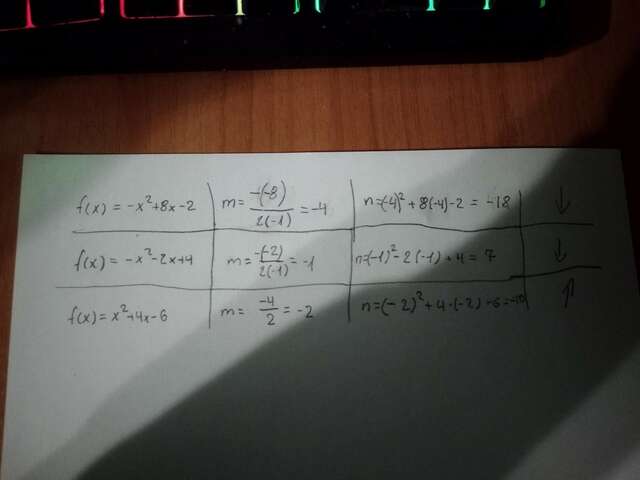 f(x) = -x²+8x-2 m= -(-8)/2(-1) = -4 n=(-4)² + 8(-4)-2 = -18 ↓
f(x) = -x²-2x+4 m= -(-2)/2(-1) = -1 n=(-1)²-2(-1)+4 = 7 ↓
f(x) = x²+4x-6 m= -4/2 = -2 n=(-2)²+4·(-2)-6=-10 ↑